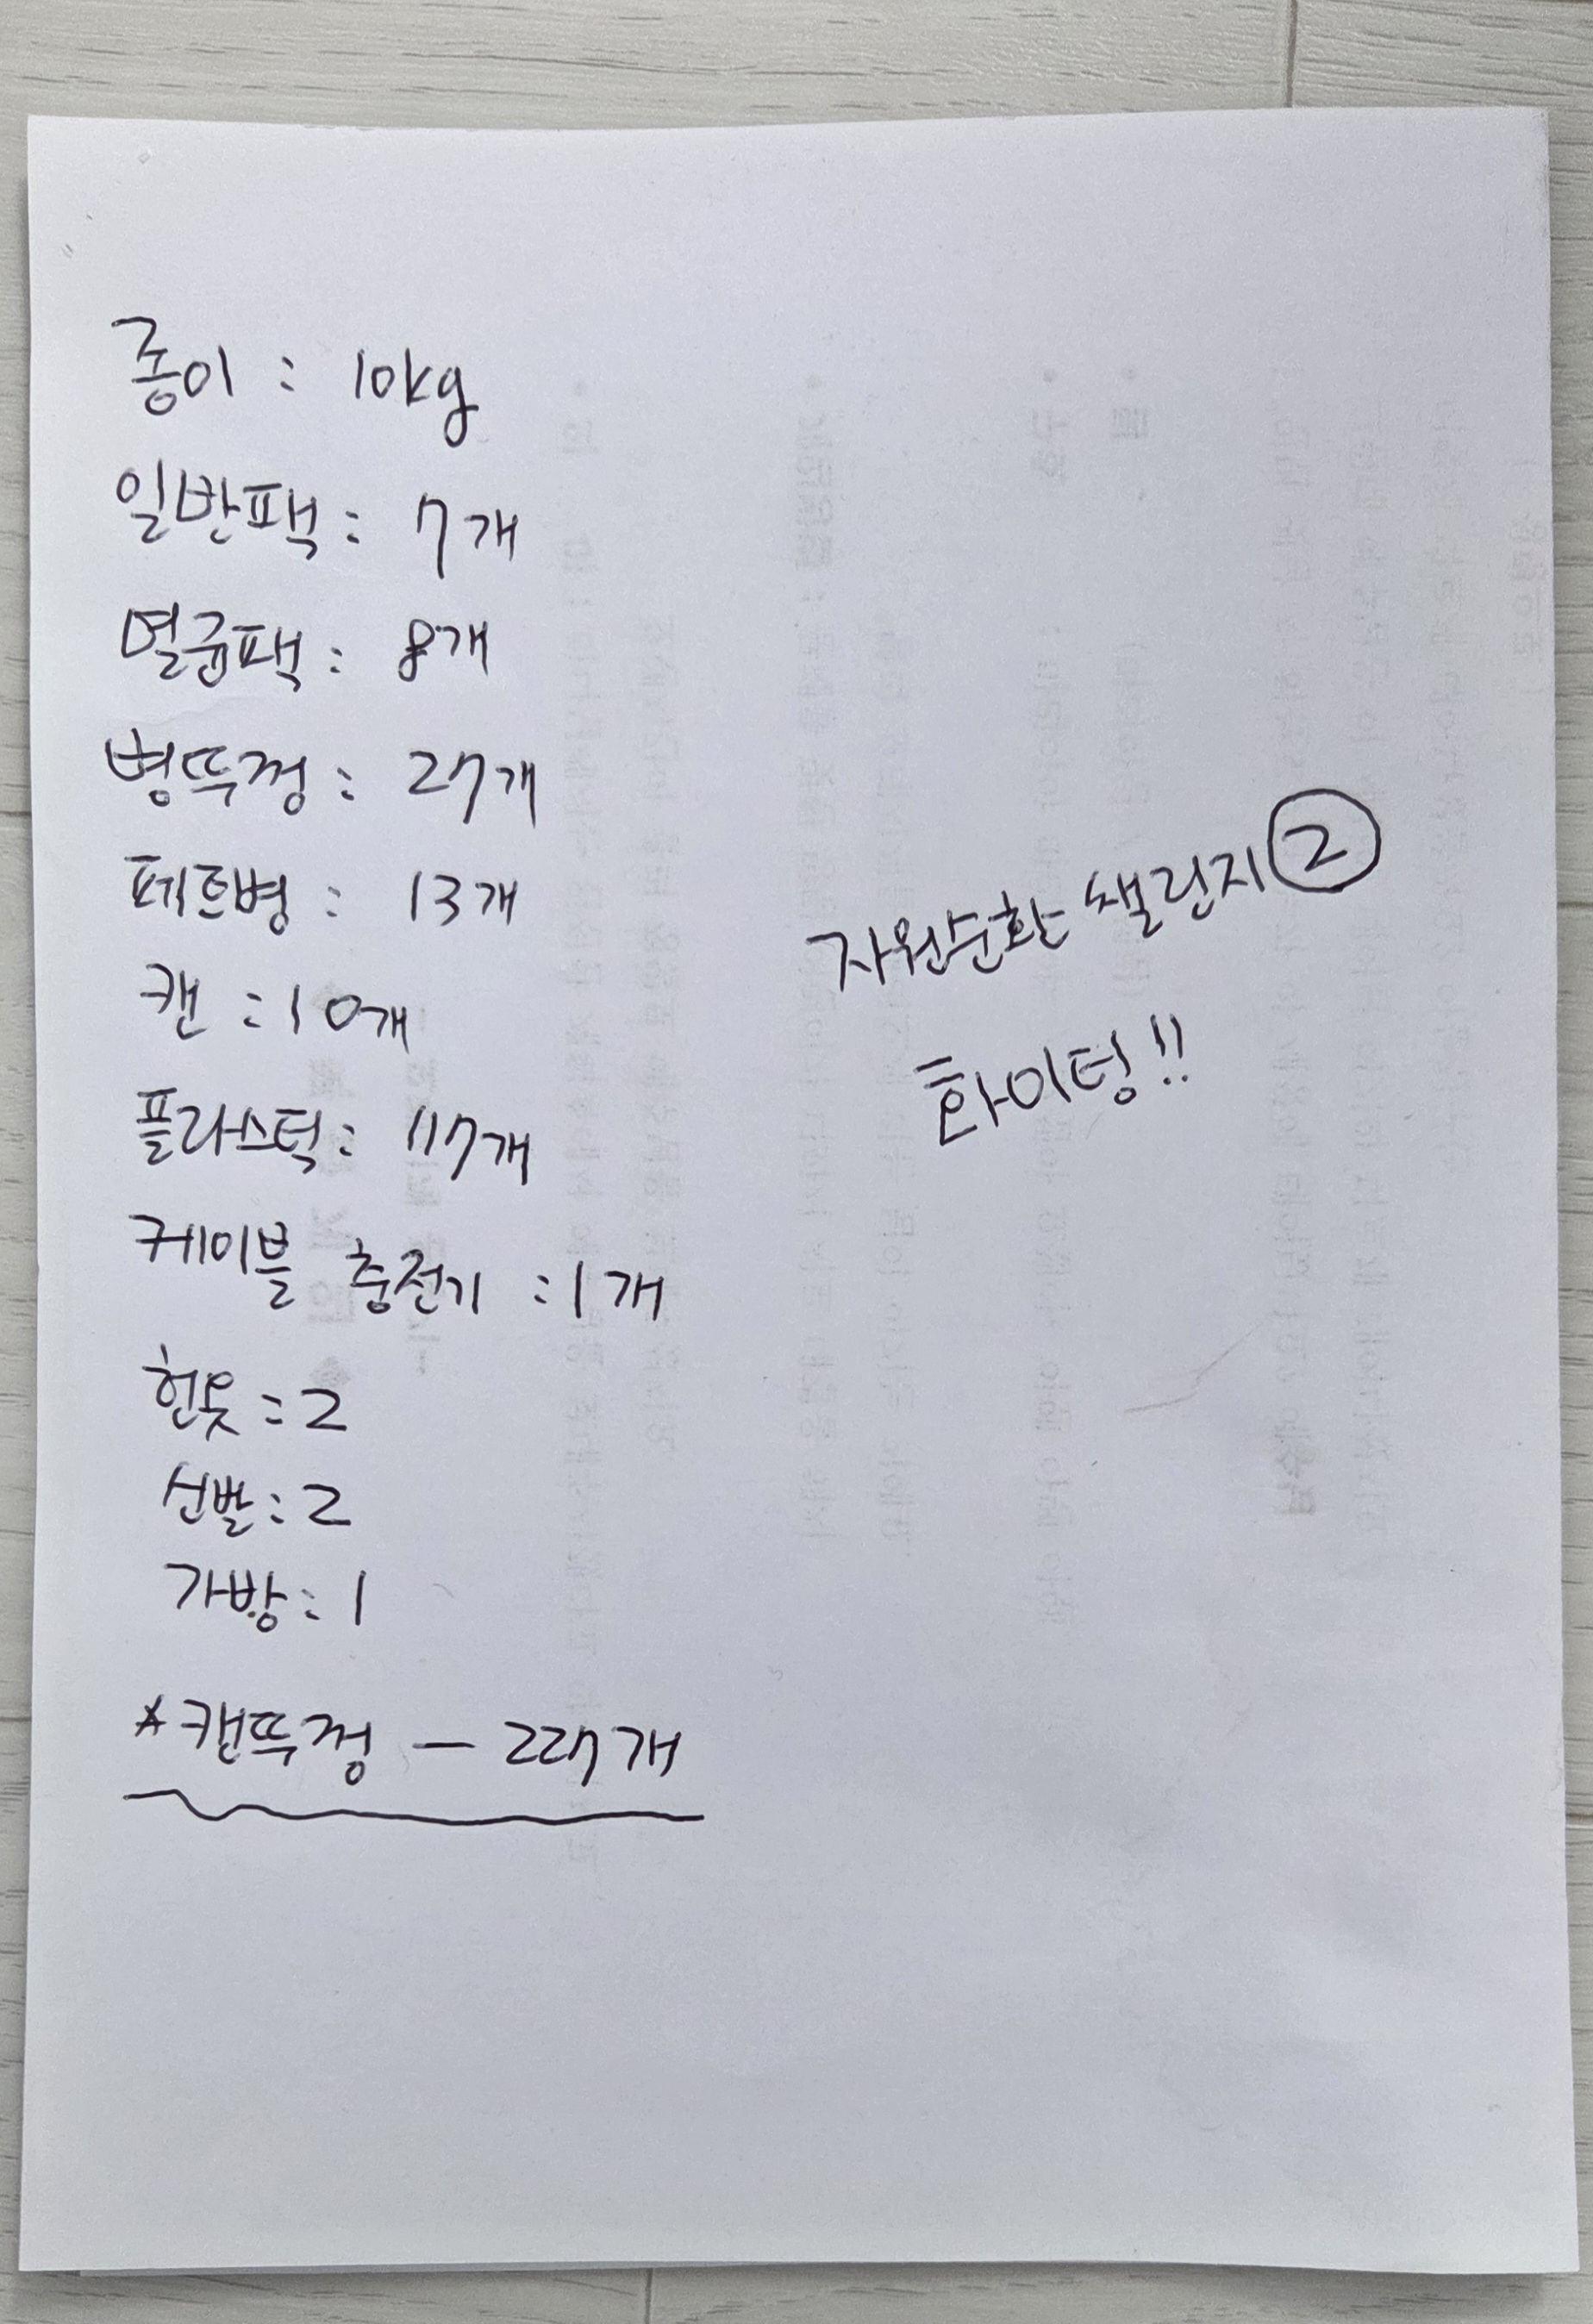 종이 : 10kg
일반팩 : 7개
멸균팩 : 8개
병뚜껑 : 27개
페트병 : 13개
캔 : 10개
플라스틱 : 117개
케이블 충전기 : 1개
헌옷 : 2
신발 : 2
가방 : 1
*캔뚜껑 — 227개
자원순환 챌린지 ②
화이팅!!